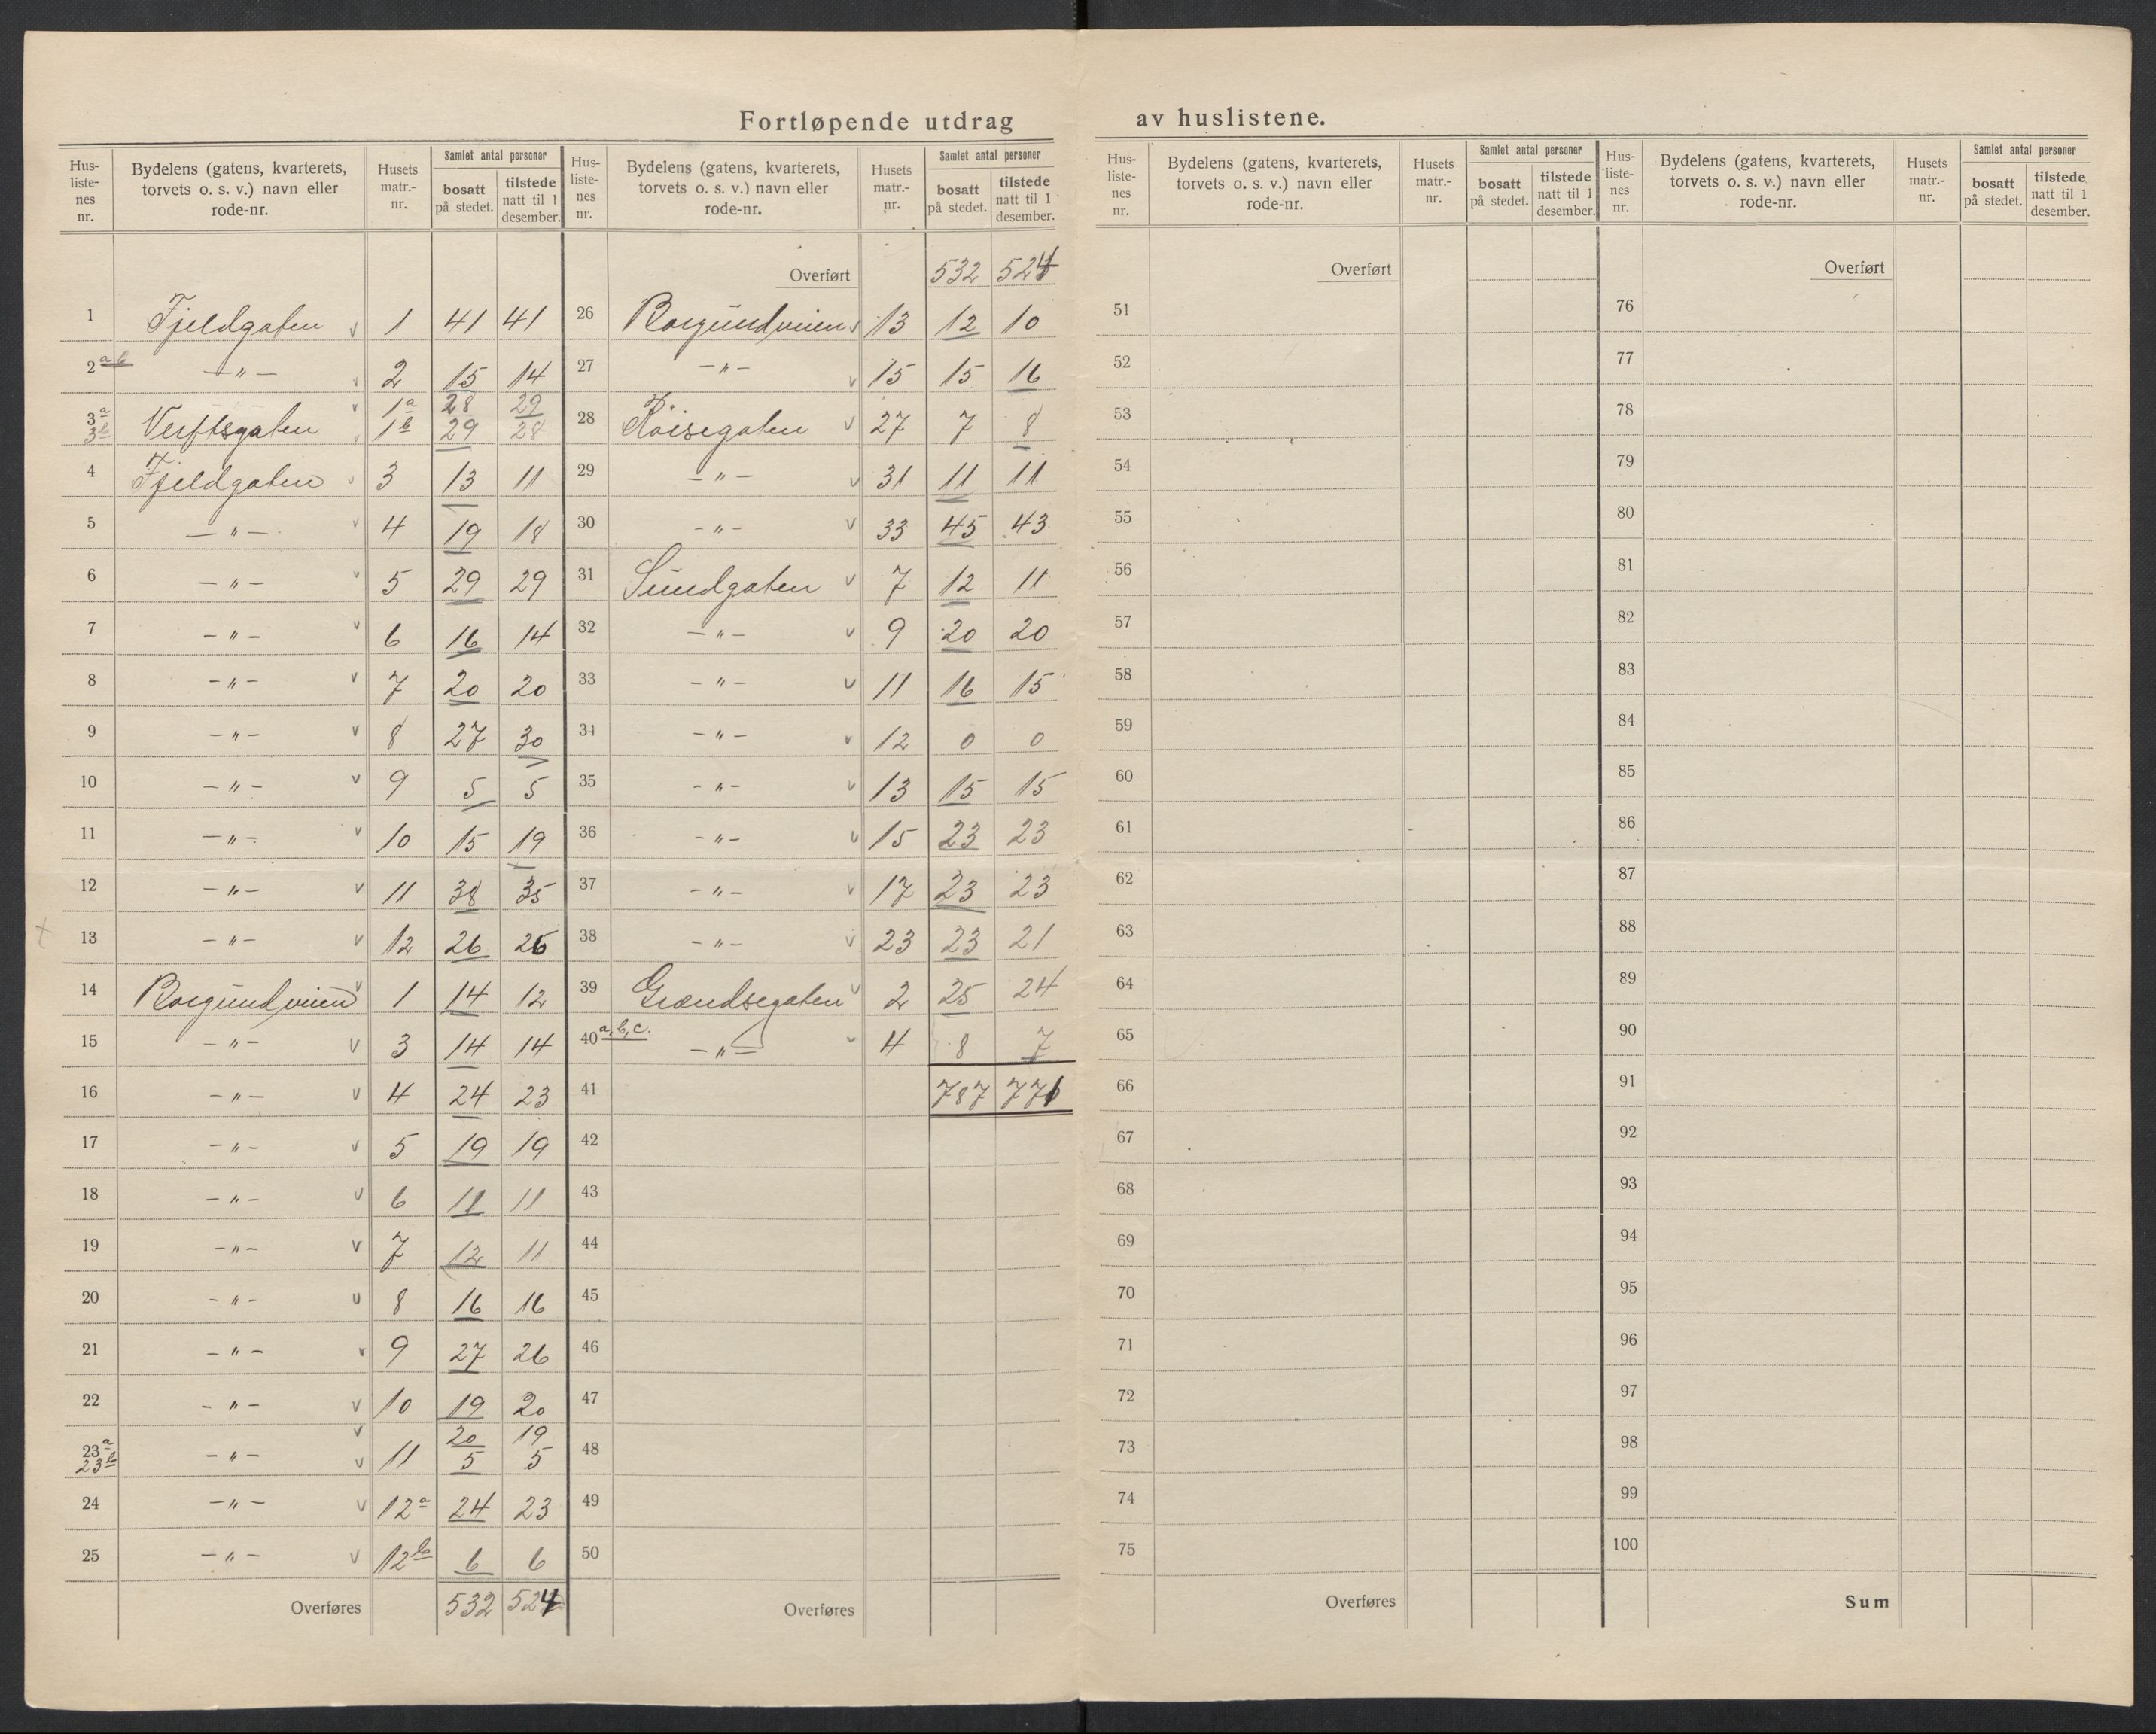 Fortløpende utdrag av huslistene.
Hus-liste-nes nr. | Bydelens (gatens, kvarterets, torvets o. s. v.) navn eller rode-nr. | Husets matr.-nr. | Samlet antal personer bosatt på stedet. | tilstede natt til 1 desember.
1 Fjeldgaten v 1 41 41
2 a b — " — v 2 15 14
3a v 1a 28 29
3b Verftsgaten v 1b 29 28
4 Fjeldgaten v 3 13 11
5 — " — v 4 19 18
6 — " — v 5 29 29
7 — " — v 6 16 14
8 — " — v 7 20 20
9 — " — v 8 27 30
10 — " — v 9 5 5
11 — " — v 10 15 19
12 — " — v 11 38 35
13 — " — v 12 26 26
14 Borgundveien v 1 14 12
15 — " — v 3 14 14
16 — " — v 4 24 23
17 — " — v 5 19 19
18 — " — v 6 11 11
19 — " — v 7 12 11
20 — " — v 8 16 16
21 — " — v 9 27 26
22 — " — v 10 19 20
23a v 20 19
23b — " — v 11 5 5
24 — " — v 12a 24 23
25 — " — v 12b 6 6
Overføres 532 524
Hus-liste-nes nr. | Bydelens (gatens, kvarterets, torvets o. s. v.) navn eller rode-nr. | Husets matr.-nr. | Samlet antal personer bosatt på stedet. | tilstede natt til 1 desember.
Overført 532 524
26 Borgundveien v 13 12 10
27 — " — v 15 15 16
28 Røisegaten v 27 7 8
29 — " — v 31 11 11
30 — " — v 33 45 43
31 Sundgaten v 7 12 11
32 — " — v 9 20 20
33 — " — v 11 16 15
34 — " — v 12 0 0
35 — " — v 13 15 15
36 — " — v 15 23 23
37 — " — v 17 23 23
38 — " — v 23 23 21
39 Grændsegaten v 2 25 24
40 a, b, c. — " — v 4 8 7
41 787 771
42
43
44
45
46
47
48
49
50
Overføres
Hus-liste-nes nr. | Bydelens (gatens, kvarterets, torvets o. s. v.) navn eller rode-nr. | Husets matr.-nr. | Samlet antal personer bosatt på stedet. | tilstede natt til 1 desember.
Overført
51
52
53
54
55
56
57
58
59
60
61
62
63
64
65
66
67
68
69
70
71
72
73
74
75
Overføres
Hus-liste-nes nr. | Bydelens (gatens, kvarterets, torvets o. s. v.) navn eller rode-nr. | Husets matr.-nr. | Samlet antal personer bosatt på stedet. | tilstede natt til 1 desember.
Overført
76
77
78
79
80
81
82
83
84
85
86
87
88
89
90
91
92
93
94
95
96
97
98
99
100
Sum